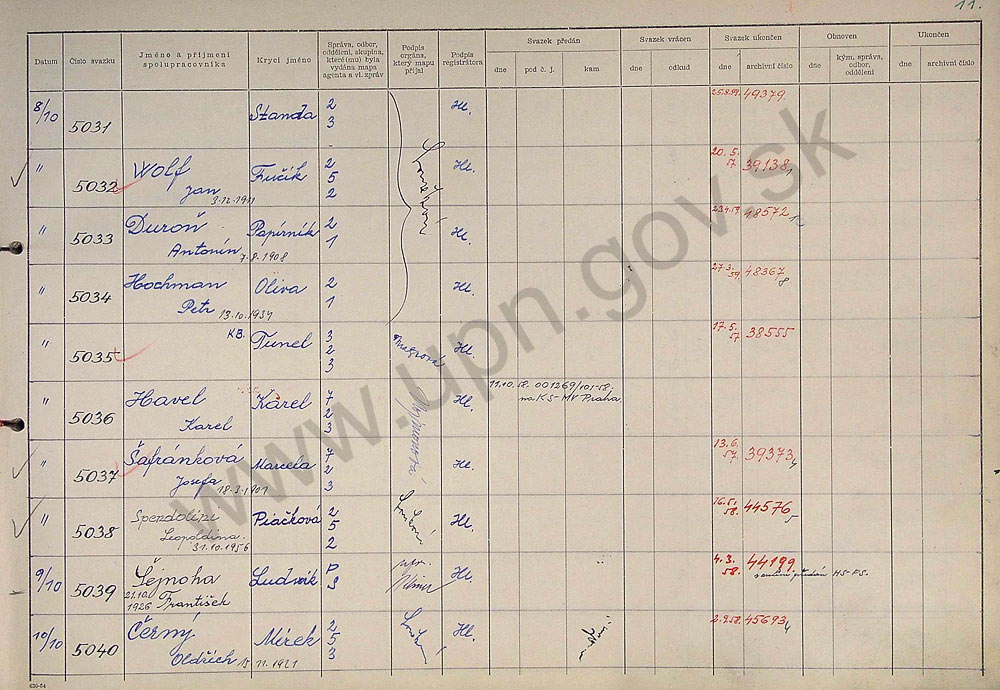 11.
Datum
Číslo svazku
Jméno a příjmení
spolupracovníka
Krycí jméno
Správa, odbor,
oddělení, skupina,
které(mu) byla
vydána mapa
agenta a vl. zpráv
Podpis
orgána,
který mapu
přijal
Podpis
registrátora
Svazek předán
dne
pod č. j.
kam
Svazek vrácen
dne
odkud
Svazek ukončen
dne
archivní číslo
Obnoven
dne
kým, správa,
odbor,
oddělení
Ukončen
dne
archivní číslo
8/10 5031 Standa 2 3 Hl. 25.8.59. 49379
" 5032 Wolf Jan 3.12.1911 Fučík 2 5 2 Hl. 20.5. 57. 39138
" 5033 Duroň Antonín 7.8.1908 Papírník 2 1 Hl. 48572
" 5034 Hochman Petr 13.10.1934 Oliva 2 1 Hl. 27.3. 59. 48367 8
" 5035 KB. Tunel 3 2 3 Hl. 17.5. 57 38555
" 5036 Havel Karel Karel 7 2 3 Hl. 11.10.58. 001269/101-58.
na KS-MV Praha
" 5037 Šafránková Josefa Marcela 7 2 3 Hl. 13.6. 57. 39373 4
" 5038 Leopoldina 31.10.1956 Piačková 2 5 2 Hl. 58. 44576 5
9/10 5039 Šejnoha 21.10. 1926 František Ludvík P S Hl. 4.3. 58. 44199
předán HS-PS.
10/10 5040 Černý Oldřich 15.11.1921 Mirek 2 5 3 Hl. 2.9.58. 45693 4
630-54
www.upn.gov.sk